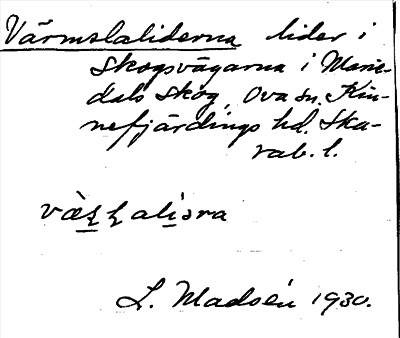 Värmslaliderna lider i
Skogsvägarna i Marie-
dals skog, Ova sn. Kin-
nefjärdings hd. Ska-
rab. l.
L. Madsén 1930.